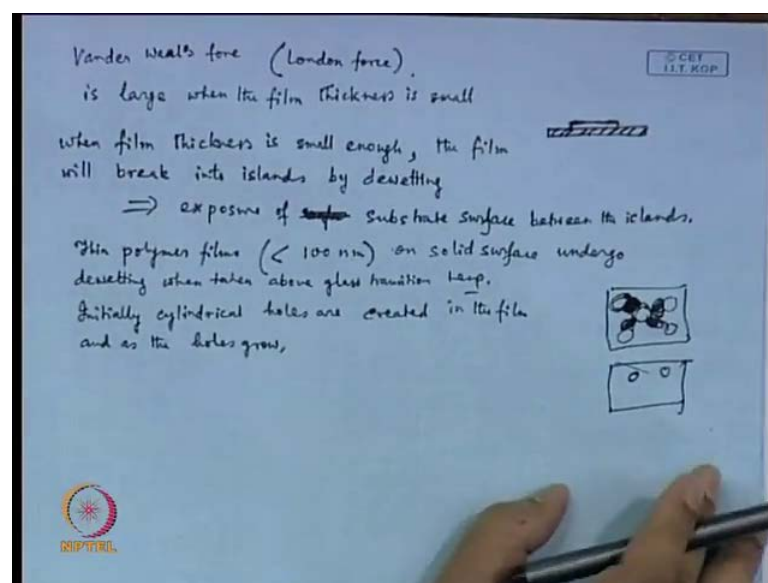 Vander Weal's force (London force).
© CET
I.I.T. KGP
is large when the film thickness is small
when film thickness is small enough, the film
will break into islands by dewetting
⇒ exposure of substrate surface between the islands.
Thin polymer films (< 100 nm) on solid surface undergo
dewetting when taken above glass transition temp.
Initially cylindrical holes are created in the film
and as the holes grow,
NPTEL